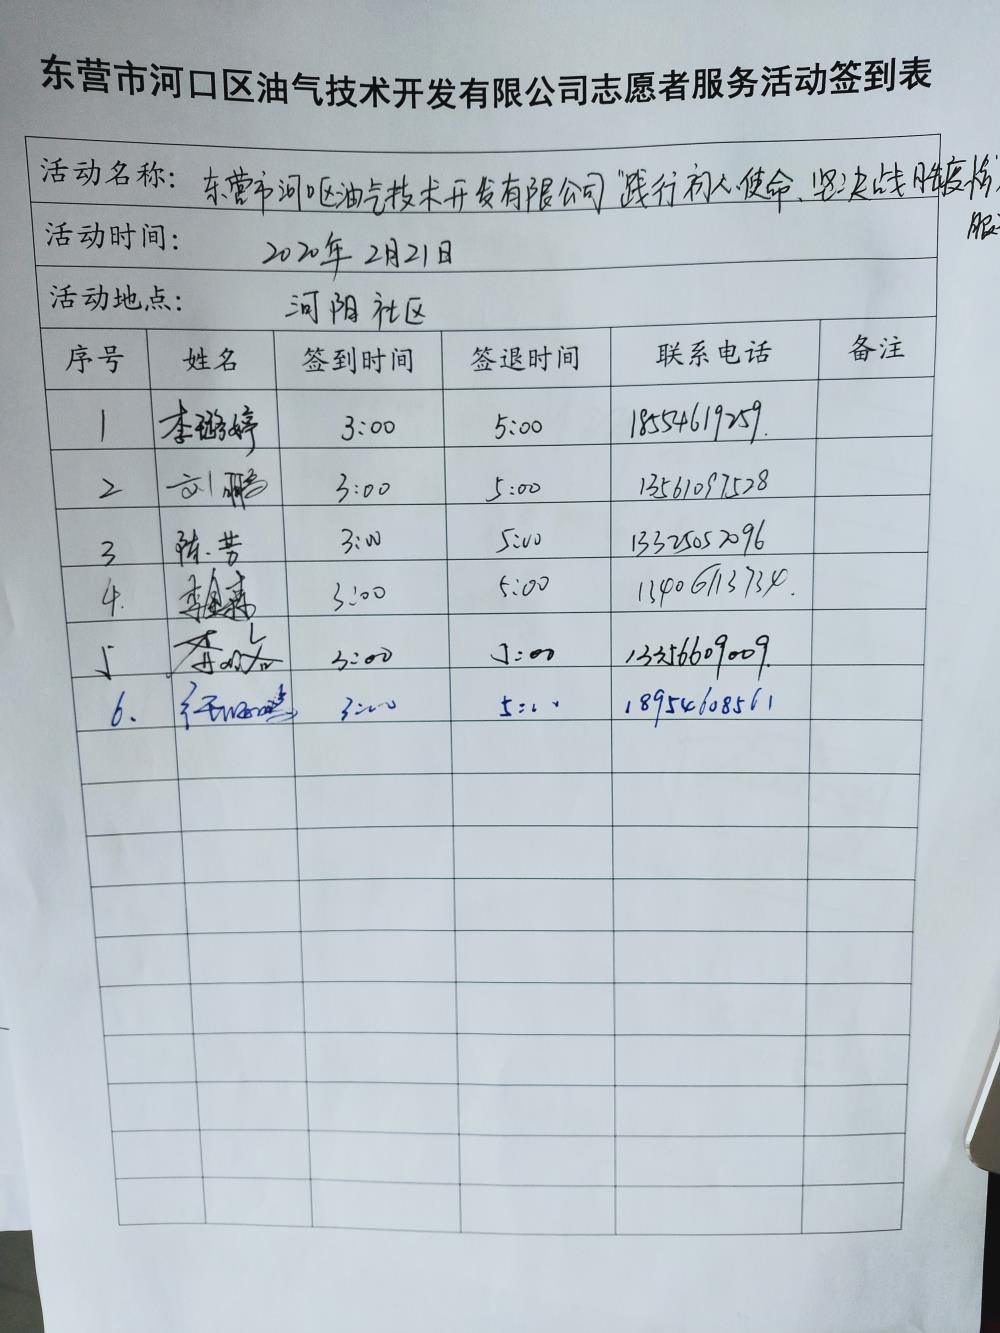 东营市河口区油气技术开发有限公司志愿者服务活动签到表
活动名称: 东营市河口区油气技术开发有限公司“践行初心使命、坚决战胜疫情
服
活动时间: 2020年2月21日
活动地点: 河阳社区
序号 姓名 签到时间 签退时间 联系电话 备注
1 李璐婷 3:00 5:00 18554619259.
2 刘鹏 3:00 5:00 13561097528
3 陈芳 3:00 5:00 13325057096
4. 3:00 5:00 13406713734.
5 3:00 5:00 13356609009.
6. 3:00 5:00 18954608561